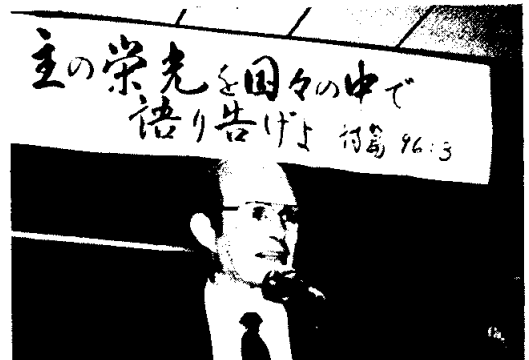 主の栄光を国々の中で
語り告げよ 詩篇 96:3